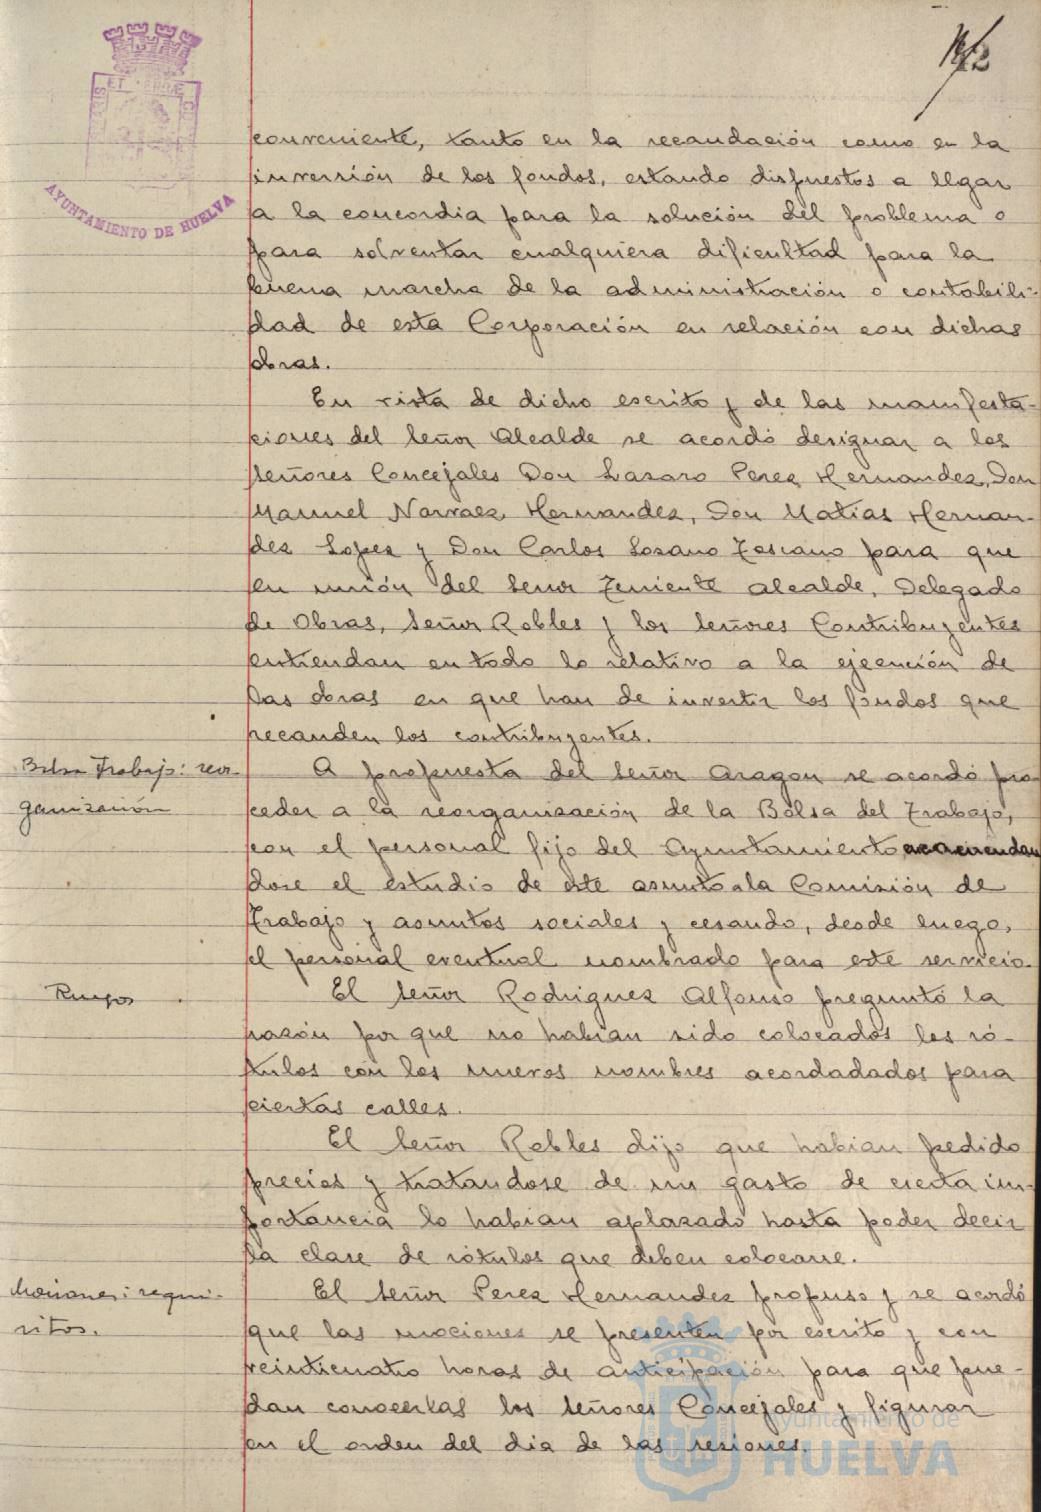 AYUNTAMIENTO DE HUELVA
conveniente, tanto en la recaudación como en la
inversión de los fondos, estando dispuestos a llgar
a la concordia para la solución del problema o
para solventar cualquiera dificultad para la
buena marcha de la administración o contabili-
dad de esta Corporación en relación con dichas
obras.
En vista de dicho escrito y de las manifesta-
ciones del Señor Alcalde se acordó designar a los
señores Concejales Don Lazaro Perez Hernandez, Don
Manuel Narvaez Hernandez, Don Matias Hernan-
dez Lopez y Don Carlos Lozano Toscano para que
en unión del Señor Teniente Alcalde, Delegado
de Obras, Señor Robles y los Señores Contribuyentes
entiendan en todo lo relativo a la ejecución de
las obras en que han de invertir los fondos que
recauden los contribuyentes.
Bolsa Trabajo: reor-
ganización
A propuesta del Señor Aragon se acordó pro
ceder a la reorganización de la Bolsa del Trabajo,
con el personal fijo del Ayuntamiento
dose el estudio de este asunto a la Comisión de
Trabajo y asuntos sociales y cesando, desde luego,
el personal eventual nombrado para este servicio.
Ruegos
El Señor Rodriguez Alfonso preguntó la
razón por que no habian sido colocados los ró-
tulos con los nuevos nombres acordadados para
ciertas calles.
El Señor Robles dijo que habian pedido
precios y tratandose de un gasto de cierta im-
portancia lo habian aplazado hasta poder decir
la clase de rótulos que deben colocarse.
Mociones: requi-
sitos.
El Señor Perez Hernandez propuso y se acordó
que las mociones se presenten por escrito y con
veinticuatro horas de anticipación para que pue-
dan conocerlas los Señores Concejales y figurar
en el orden del dia de las sesiones.
Ayuntamiento de
HUELVA